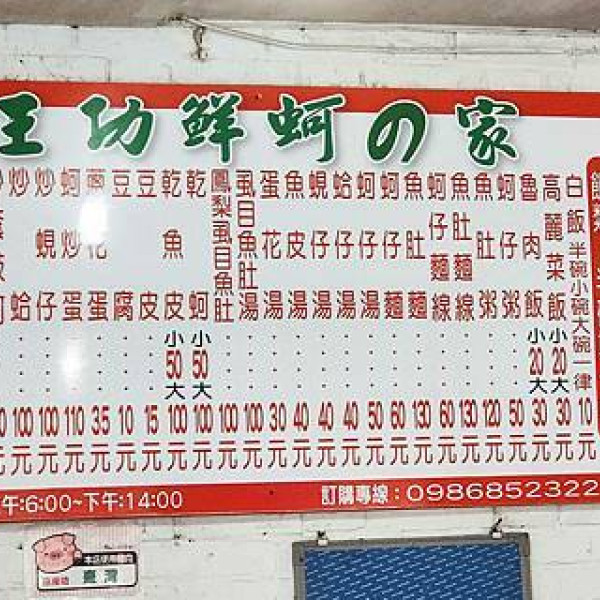 王功鮮蚵の家
白飯半碗小碗大碗一律10元
高麗菜飯小20大30元
魯肉飯小20大30元
蚵仔粥50元
魚肚粥120元
魚肚麵線130元
蚵仔麵線60元
魚肚麵130元
蚵仔麵60元
蚵仔湯50元
蛤仔湯40元
蜆仔湯40元
魚皮湯40元
蛋花湯30元
虱目魚肚湯100元
鳳梨虱目魚肚100元
乾蚵小50大100元
乾魚皮小50大100元
豆皮15元
豆腐10元
蔥花蛋35元
蚵炒蛋110元
炒蜆仔100元
炒蛤100元
午:6:00~下午:14:00
訂購專線:0986852322
臺灣